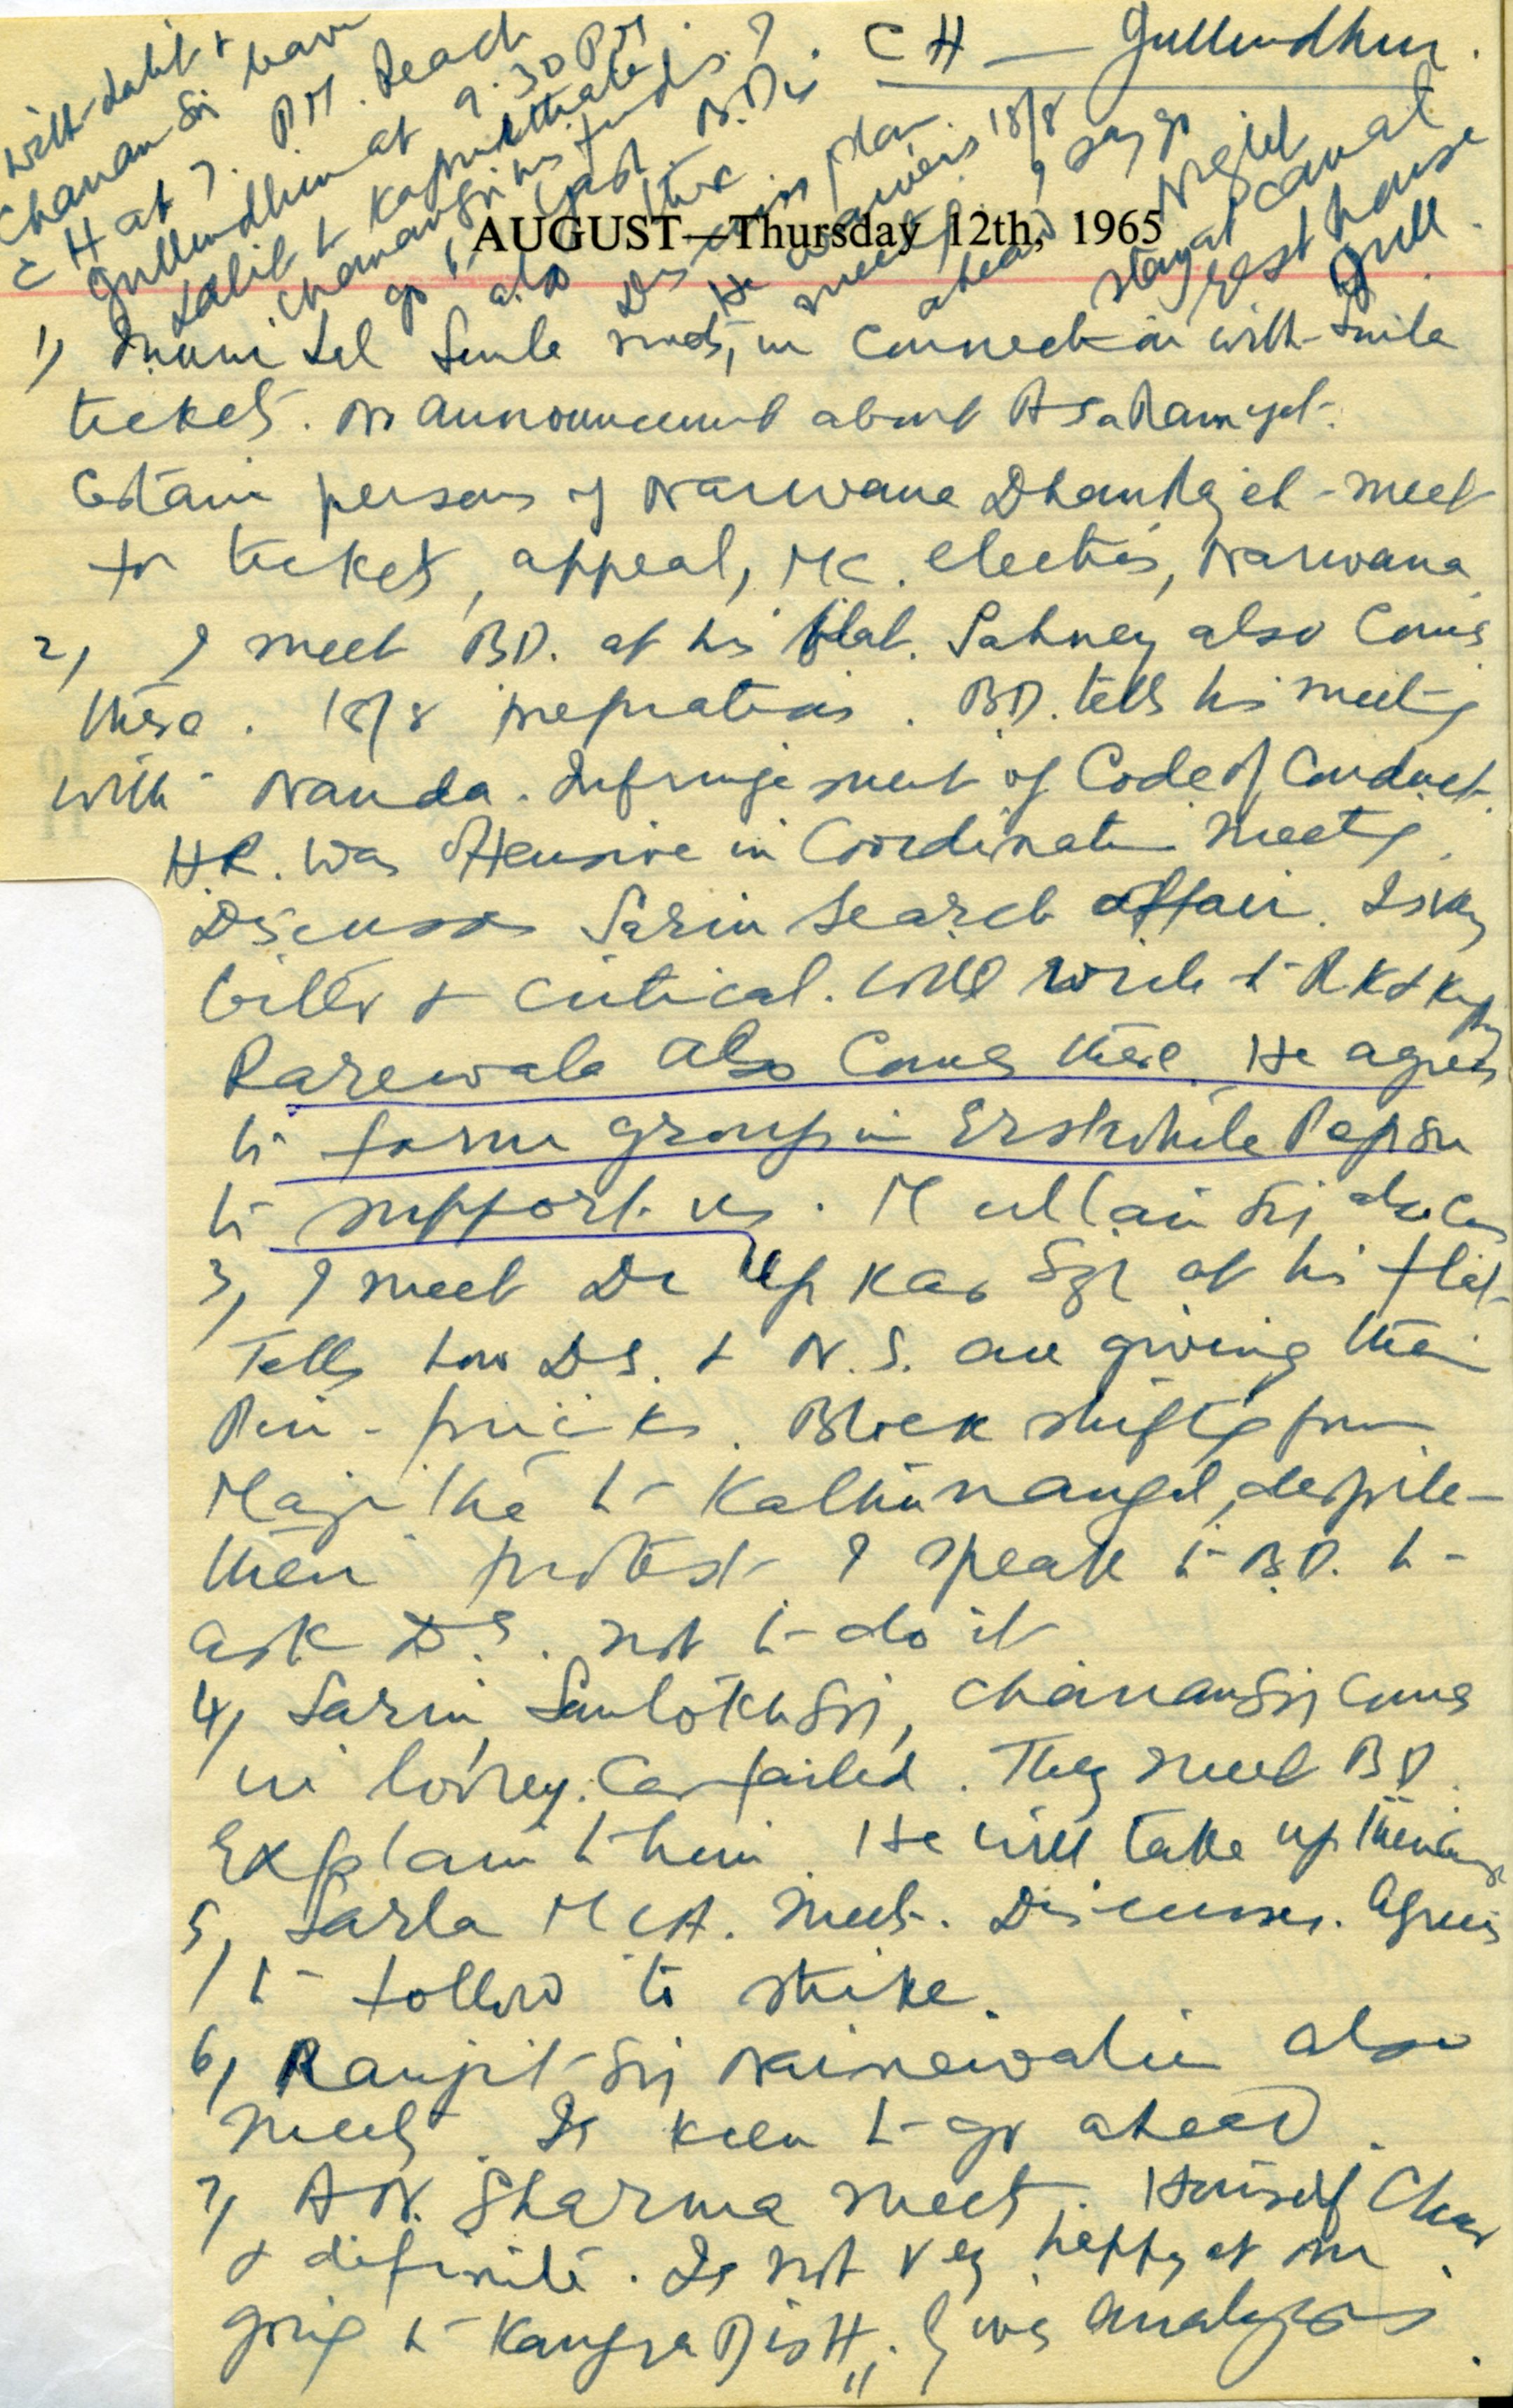 CH — Jullundhur.
AUGUST—Thursday 12th, 1965
1) Muni Lal Simla meets, in connection with Simla
tickets. No announcement about Asa Ram yet.
Certain persons of Narwana Dhanraj et - meet
for tickets, appeal, MC. elections, Narwana
2) I meet BD. at his flat. Sahney also comes
there. 18/8 preparations. B.D. tells his meeting
with Nanda. Infringement of Code of Conduct.
H.R. was offensive in Coordination Meeting.
Discuss Sarin Search affair. Is very
bitter & critical. Will write to R K &
Rarewala also comes there. He agrees
to form group in Erstwhile Pepsu
to support us. Mullain Sgj also
3) I meet Dr Upkar Sgh at his flat
Tells how DS. & N.S. are giving them
Pin-pricks. Block shifting from
Majitha to Kathunangal, despite
their protest I speak to B.D. to
ask DS. not to do it
4) Sarin, Santokh Sgj, Chanan Sgj come
in lorrey. Car failed. They meet BD.
Explain to him. He will take up their
5) Sarla MLA. meets. Discusses. Agrees
to follow to strike.
6) Ranjit Sgj Nainewalia also
meets. Is keen to go ahead.
7) A.N. Sharma meets. Himself Clear
& definite. Is not very happy at my
going to Kangra Distt,,. Gives analysis.
with Lalit &
Chanan Sgj leave
CH at 7. P.M. Reach
Jullundhur at 9.30 P.M.
Lalit to Kapurthala
Chanan Sgj to his friends.?
go to Yash. B.D. is
also there
Discuss plan.
He
meet 18/8
ahead, I say go
Stay at Night
at Canal
Rest house
Jull.